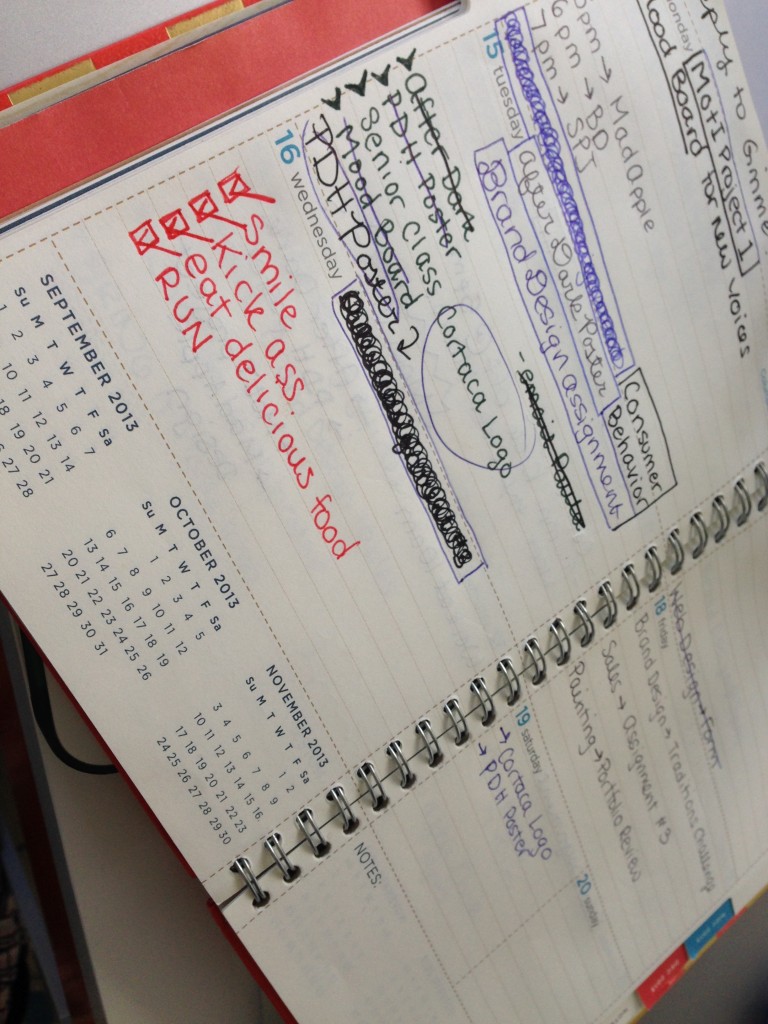 to Gimme
MotI Project 1
Board for New Voices
5pm → MadApple
6 pm → BD
7 pm → SPJ
15 tuesday
Consumer
Behavior
After Dark Poster
Brand Design assignment
After Dark
PDH Poster
Senior Class
Mood Board
PDH Poster
Cortaca Logo
16 wednesday
smile
kick ass
eat delicious food
RUN
SEPTEMBER 2013
Su M T W T F Sa
1 2 3 4 5 6 7
10 11 12 13 14
18 19 20 21
26 27 28
OCTOBER 2013
Su M T W T F Sa
1 2 3 4 5
6 7 8 9 10 11 12
13 14 15 16 17 18 19
20 21 22 23 24 25 26
27 28 29 30 31
NOVEMBER 2013
Su M T W T F Sa
1 2
3 4 5 6 7 8 9
10 11 12 13 14 15 16
17 18 19 20 21 22 23
24 25 26 27 28 29 30
18 friday
Brand Design → Traditions Challenge
Sales → Assignment #3
Painting → Portfolio Review
19 saturday
→ Cortaca Logo
→ PDH Poster
20 sunday
NOTES: